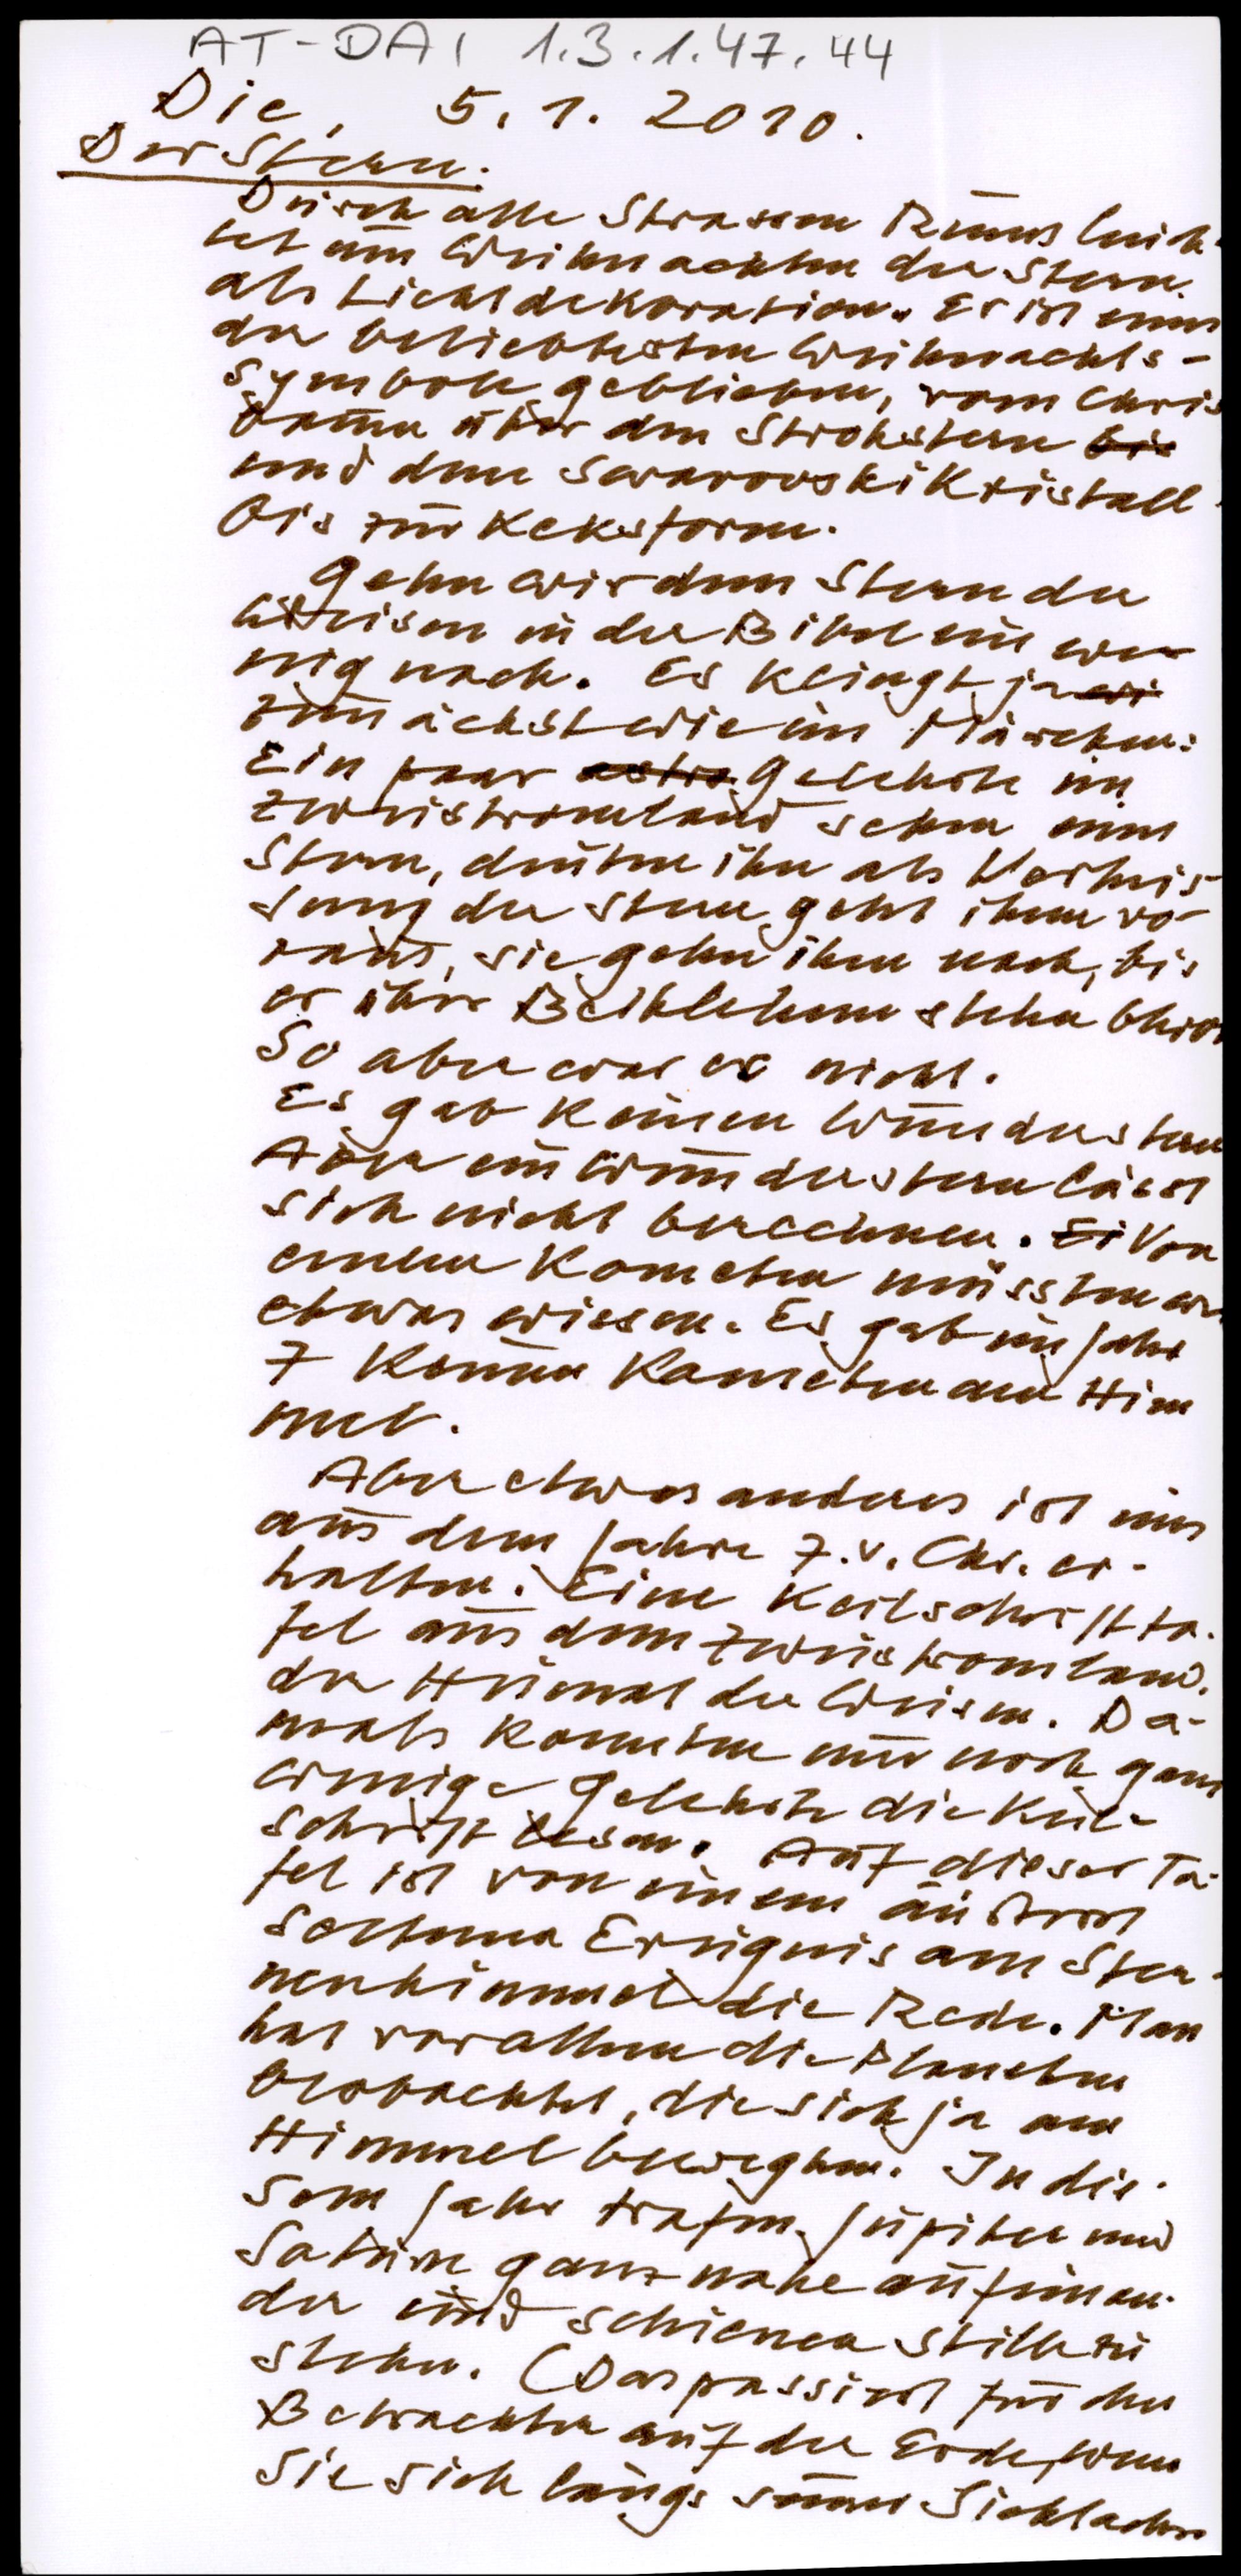 AT-DAI 1.3.1.47.44
Die, 5.1.2010.
Der Stern.
Durch alle Strassen Rums leuch-
tet um Weihnachten der Stern
als Lichtdekoration. Er ist eines
der beliebtesten Weihnachts-
symbole geblieben, vom Chris
baum über den Strohstern bis
und dem Swarovski Kristall
bis zur Keksform.
Gehn wir dem Stern der
Weisen in der Bibel ein we-
nig nach. Es klingt ja wi
zunächst wie im Märchen:
Ein paar astro Gelehrte im
Zweistromland sehen einen
Stern, deuten ihn als Verheis-
sung der Stern geht ihnen vo-
raus, sie gehn ihm nach, bis
er über Bethlehem stehn bleibt
So aber war es nicht.
Es gab keinen Wunderstern
Aber ein Wunderstern lässt
sich nicht berechnen. Ei Von
einem Kometen müssten wir
etwas wissen. Es gab im Jahr
7 keinen Kometen am Him
mel.
Aber etwas anderes ist uns
aus dem Jahre 7.v. Chr. er-
halten. Eine Keilschriftta-
fel aus dem Zweistromland,
der Heimat der Weisen. Da-
mals konnten nur noch ganz
wenige Gelehrte die Keil-
schrift lesen. Auf dieser Ta-
fel ist von einem äußerst
seltenen Ereignis am Ster-
nenhimmel die Rede. Man
hat vor allem die Planeten
beobachtet, die sich ja am
Himmel bewegten. In die-
sem Jahr trafen Jupiter und
Saturn ganz nahe aufeinan-
der und schienen still zu
stehn. (Das passiert für den
Betrachter auf der Erde, wenn
sie sich längs seiner